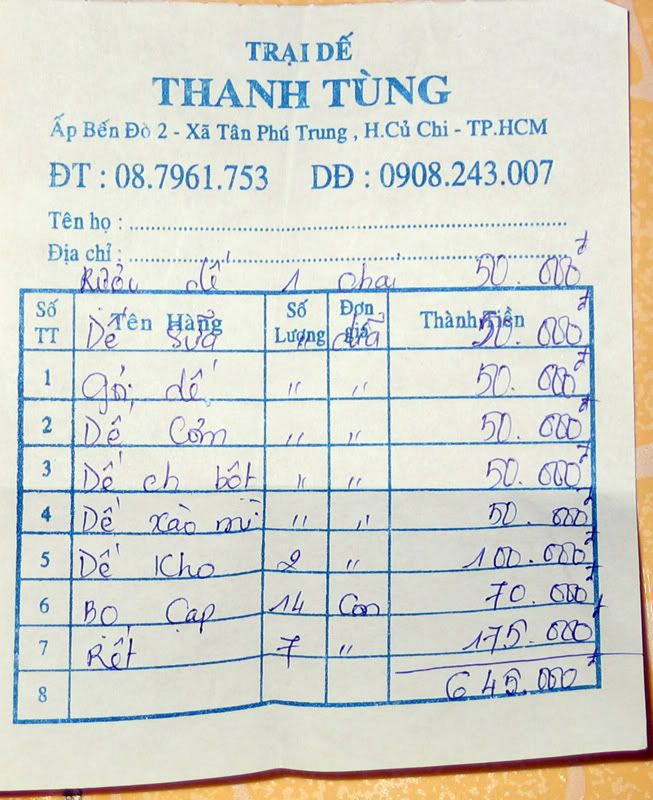 TRẠI DẾ
THANH TÙNG
Ấp Bến Đò 2 - Xã Tân Phú Trung , H.Củ Chi - TP.HCM
ĐT : 08.7961.753 DĐ : 0908.243.007
Tên họ :
Địa chỉ :
Rượu dế 1 chai 50.000đ
Số TT Tên Hàng Số Lượng Đơn giá Thành Tiền
Dế sữa " dĩa 50.000đ
1 Gỏi dế " " 50.000đ
2 Dế Cơm " " 50.000đ
3 Dế ch bột " " 50.000đ
4 Dế xào mì " " 50.000đ
5 Dế Kho 2 " 100.000đ
6 Bo Cạp 14 Con 70.000đ
7 Rết 7 " 175.000đ
8 645.000đ